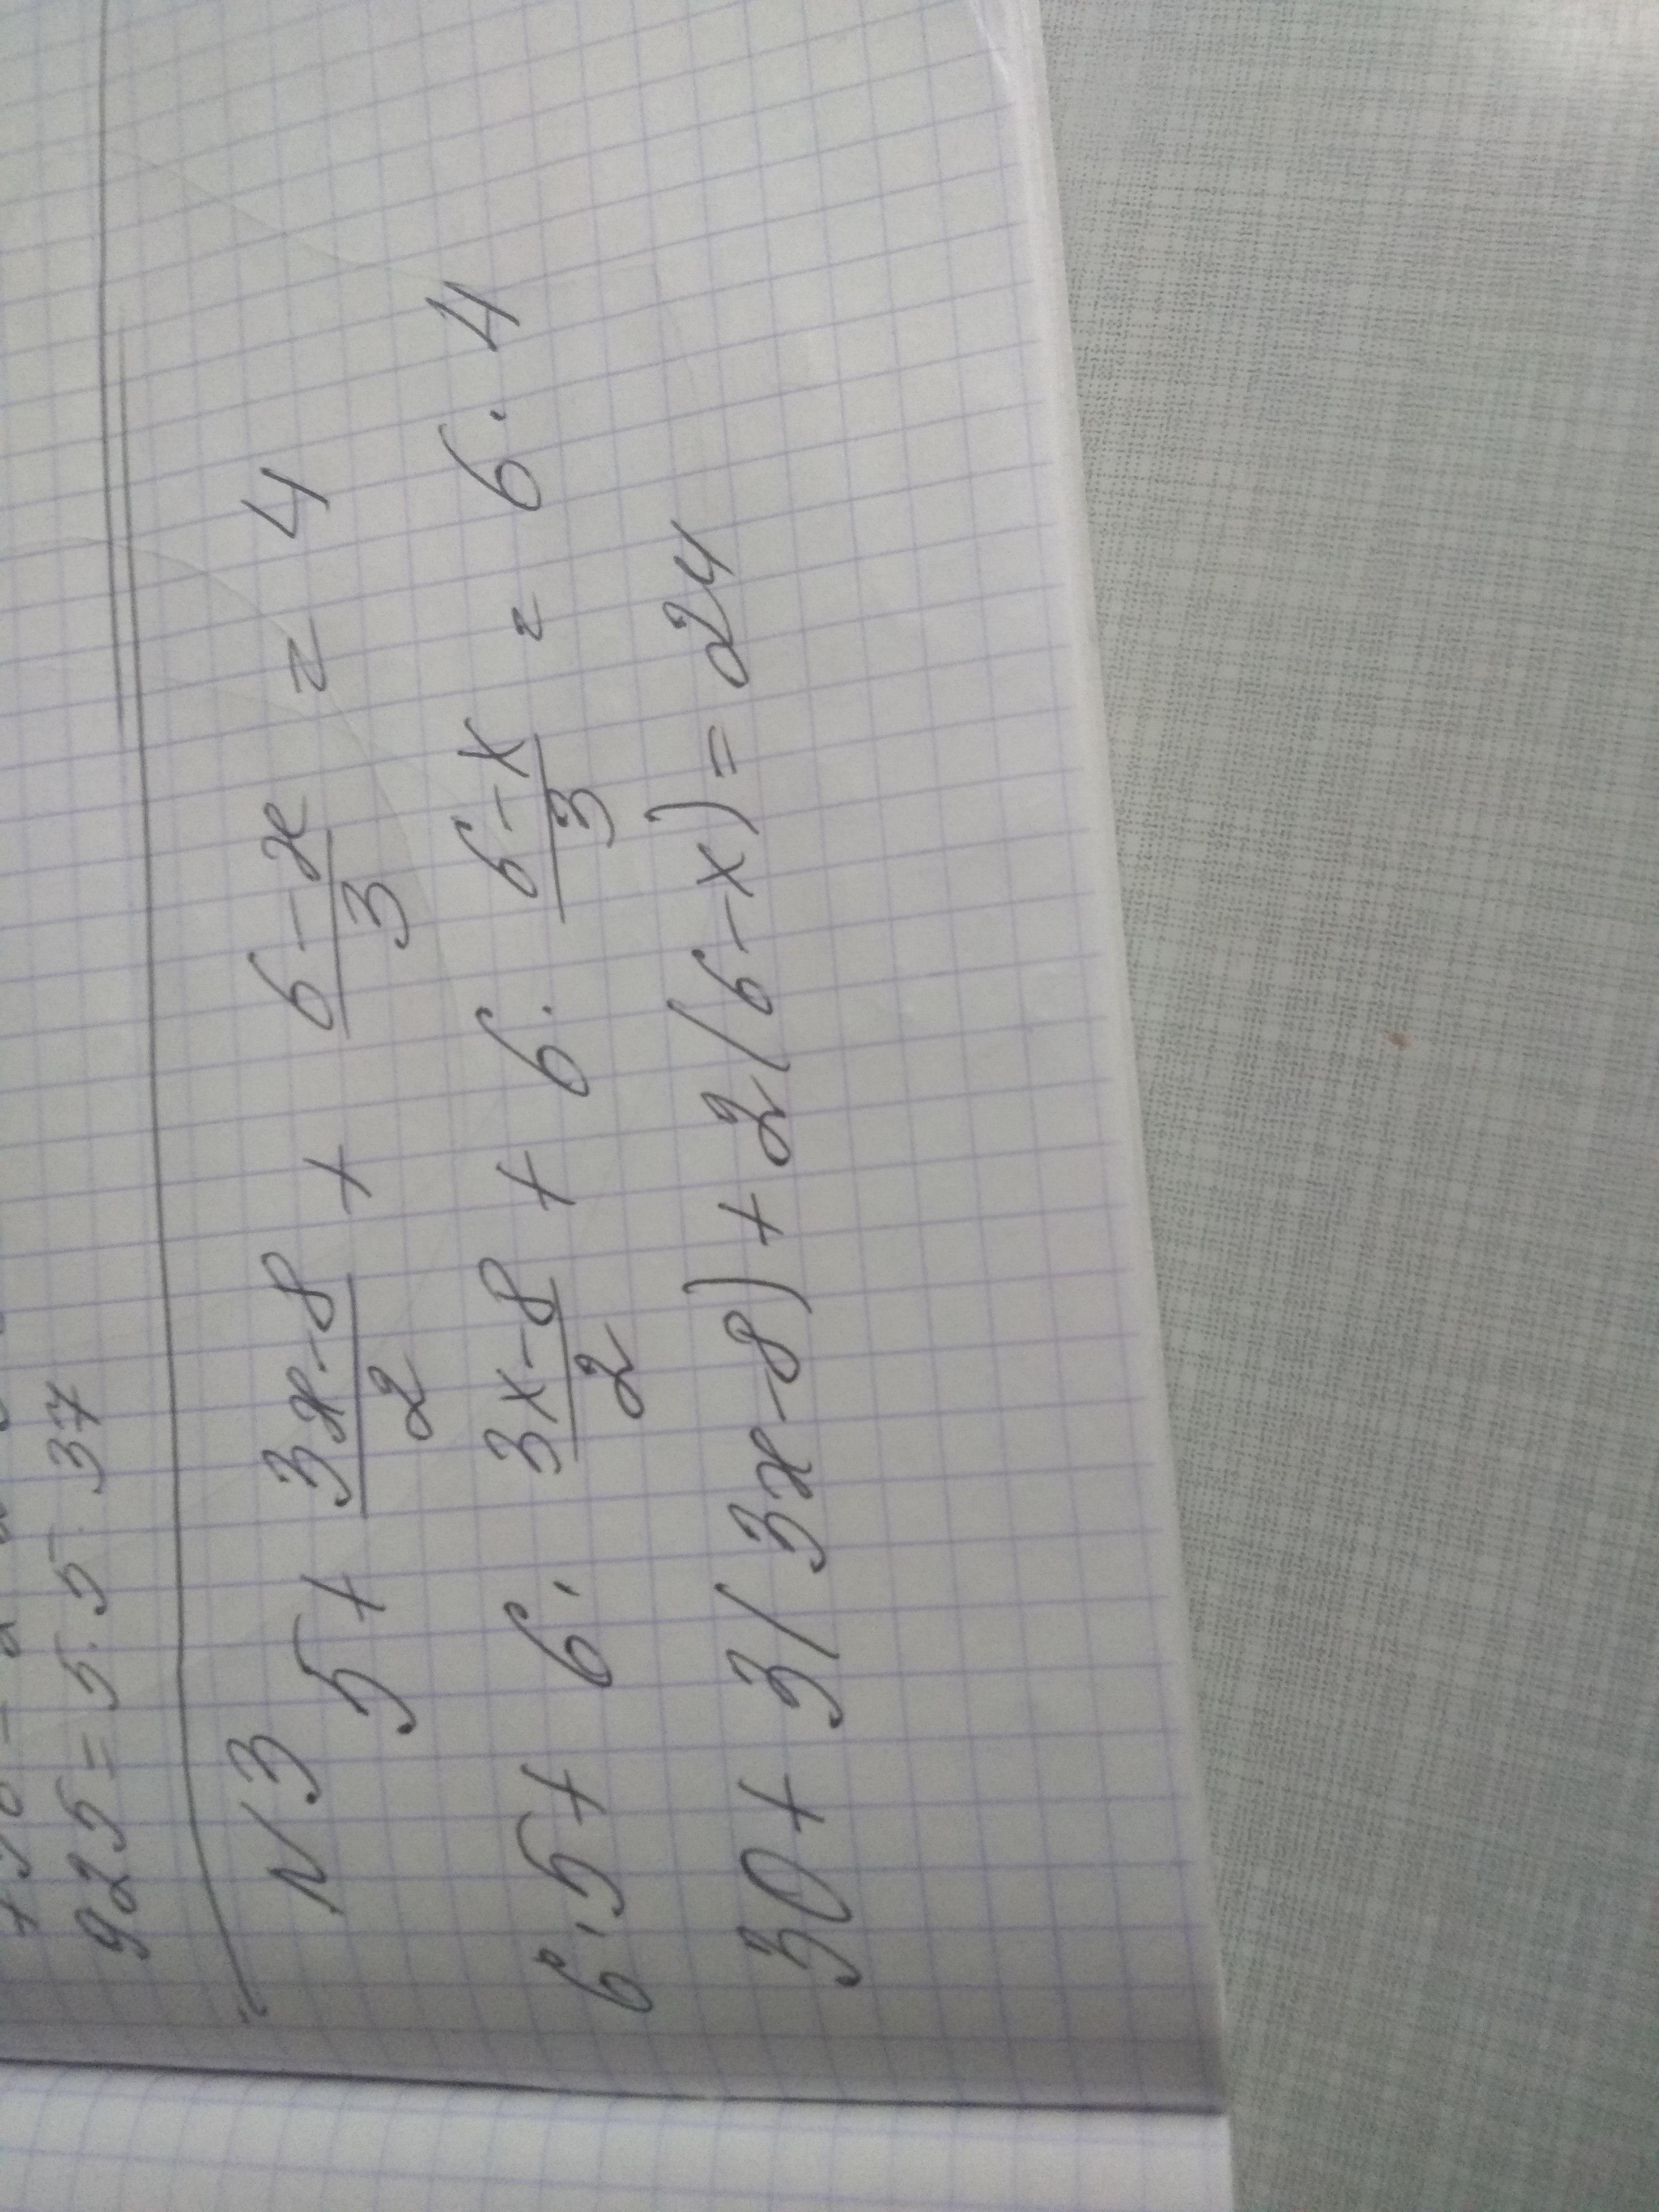 925 = 5 · 5 · 37
N 3
5 + (3x-8)/2 + (6-x)/3 = 4
6 · 5 + 6 · (3x-8)/2 + 6 · (6-x)/3 = 6 · 4
30 + 3(3x-8) + 2(6-x) = 24